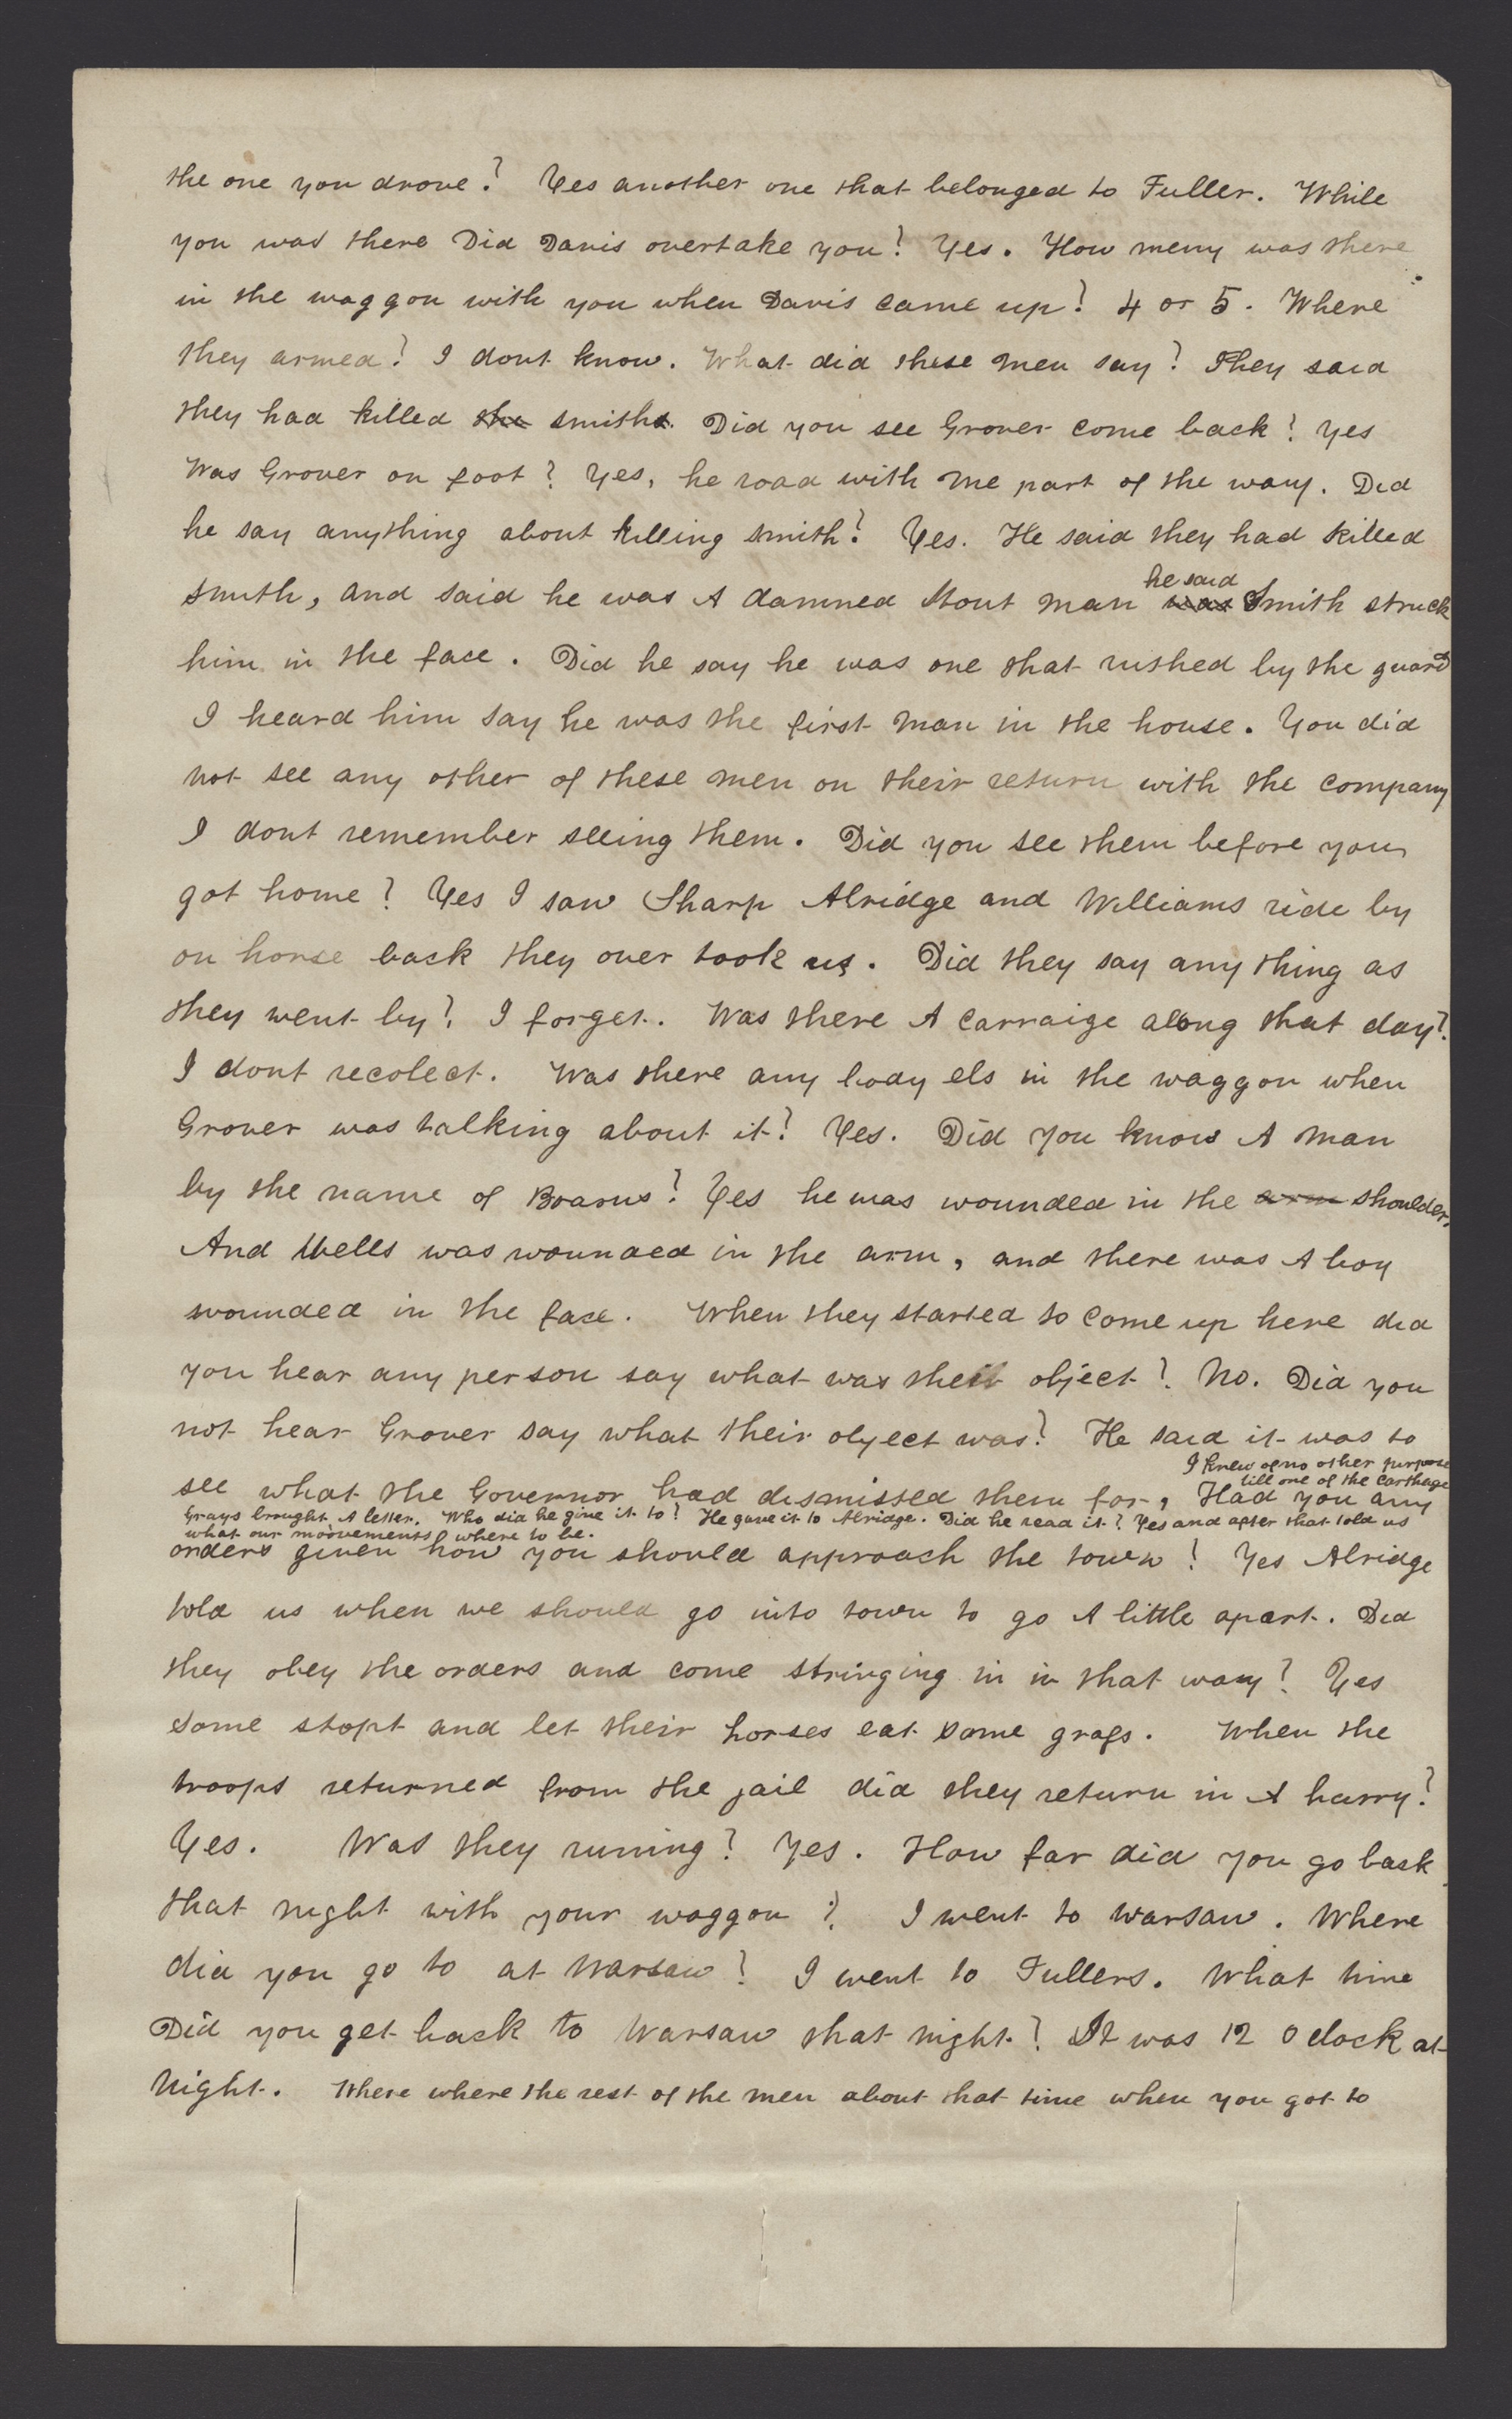 the one you drove? Yes another one that belonged to Fuller. While
you was there Did Davis overtake you? Yes. How meny was there
in the waggon with you when Davis came up? 4 or 5. Where
they armed? I dont know. What did these men say? They said
they had killed the smiths. Did you see Grover come back? yes
Was Grover on foot? Yes, he road with me part of the way. Did
he say anything about killing smith? Yes. He said they had killed
smith, and said he was A damned stout man was Smith struck
he said
him in the face. Did he say he was one that rushed by the guard
I heard him say he was the first man in the house. You did
not see any other of these men on their return with the company
I dont remember seeing them. Did you see them before you
got home? Yes I saw Sharp Alridge and Williams ride by
on horse back they over took us. Did they say any thing as
they went by? I forget. Was there A carraige along that day?
I dont recolect. Was there any body els in the waggon when
Grover was talking about it? Yes. Did you know A man
by the name of Voarus? Yes he was wounded in the arm shoulder,
And Wells was wounded in the arm, and there was A boy
wounded in the face. When they started to come up here did
you hear any person say what was their object? No. Did you
not hear Grover say what their object was? He said it was to
I knew of no other purpose
till one of the Carthage
see what the Governor had dismissed them for, Had you any
Grays brought A letter. Who did he give it to? He gave it to Alridge. Did he read it? Yes and after that told us
what our moovements where to be.
orders given how you should approach the town? Yes Alridge
told us when we should go into town to go A little apart. Did
they obey the orders and come stringing in in that way? Yes
some stopt and let their horses eat some grass. When the
troops returned from the jail did they return in A harry?
Yes. Was they runing? Yes. How far did you go back
that night with your waggon? I went to Warsaw. Where
did you go to at Warsaw? I went to Fullers. What time
Did you get back to Warsaw that night? It was 12 O clock at
night. Where where the rest of the men about that time when you got to